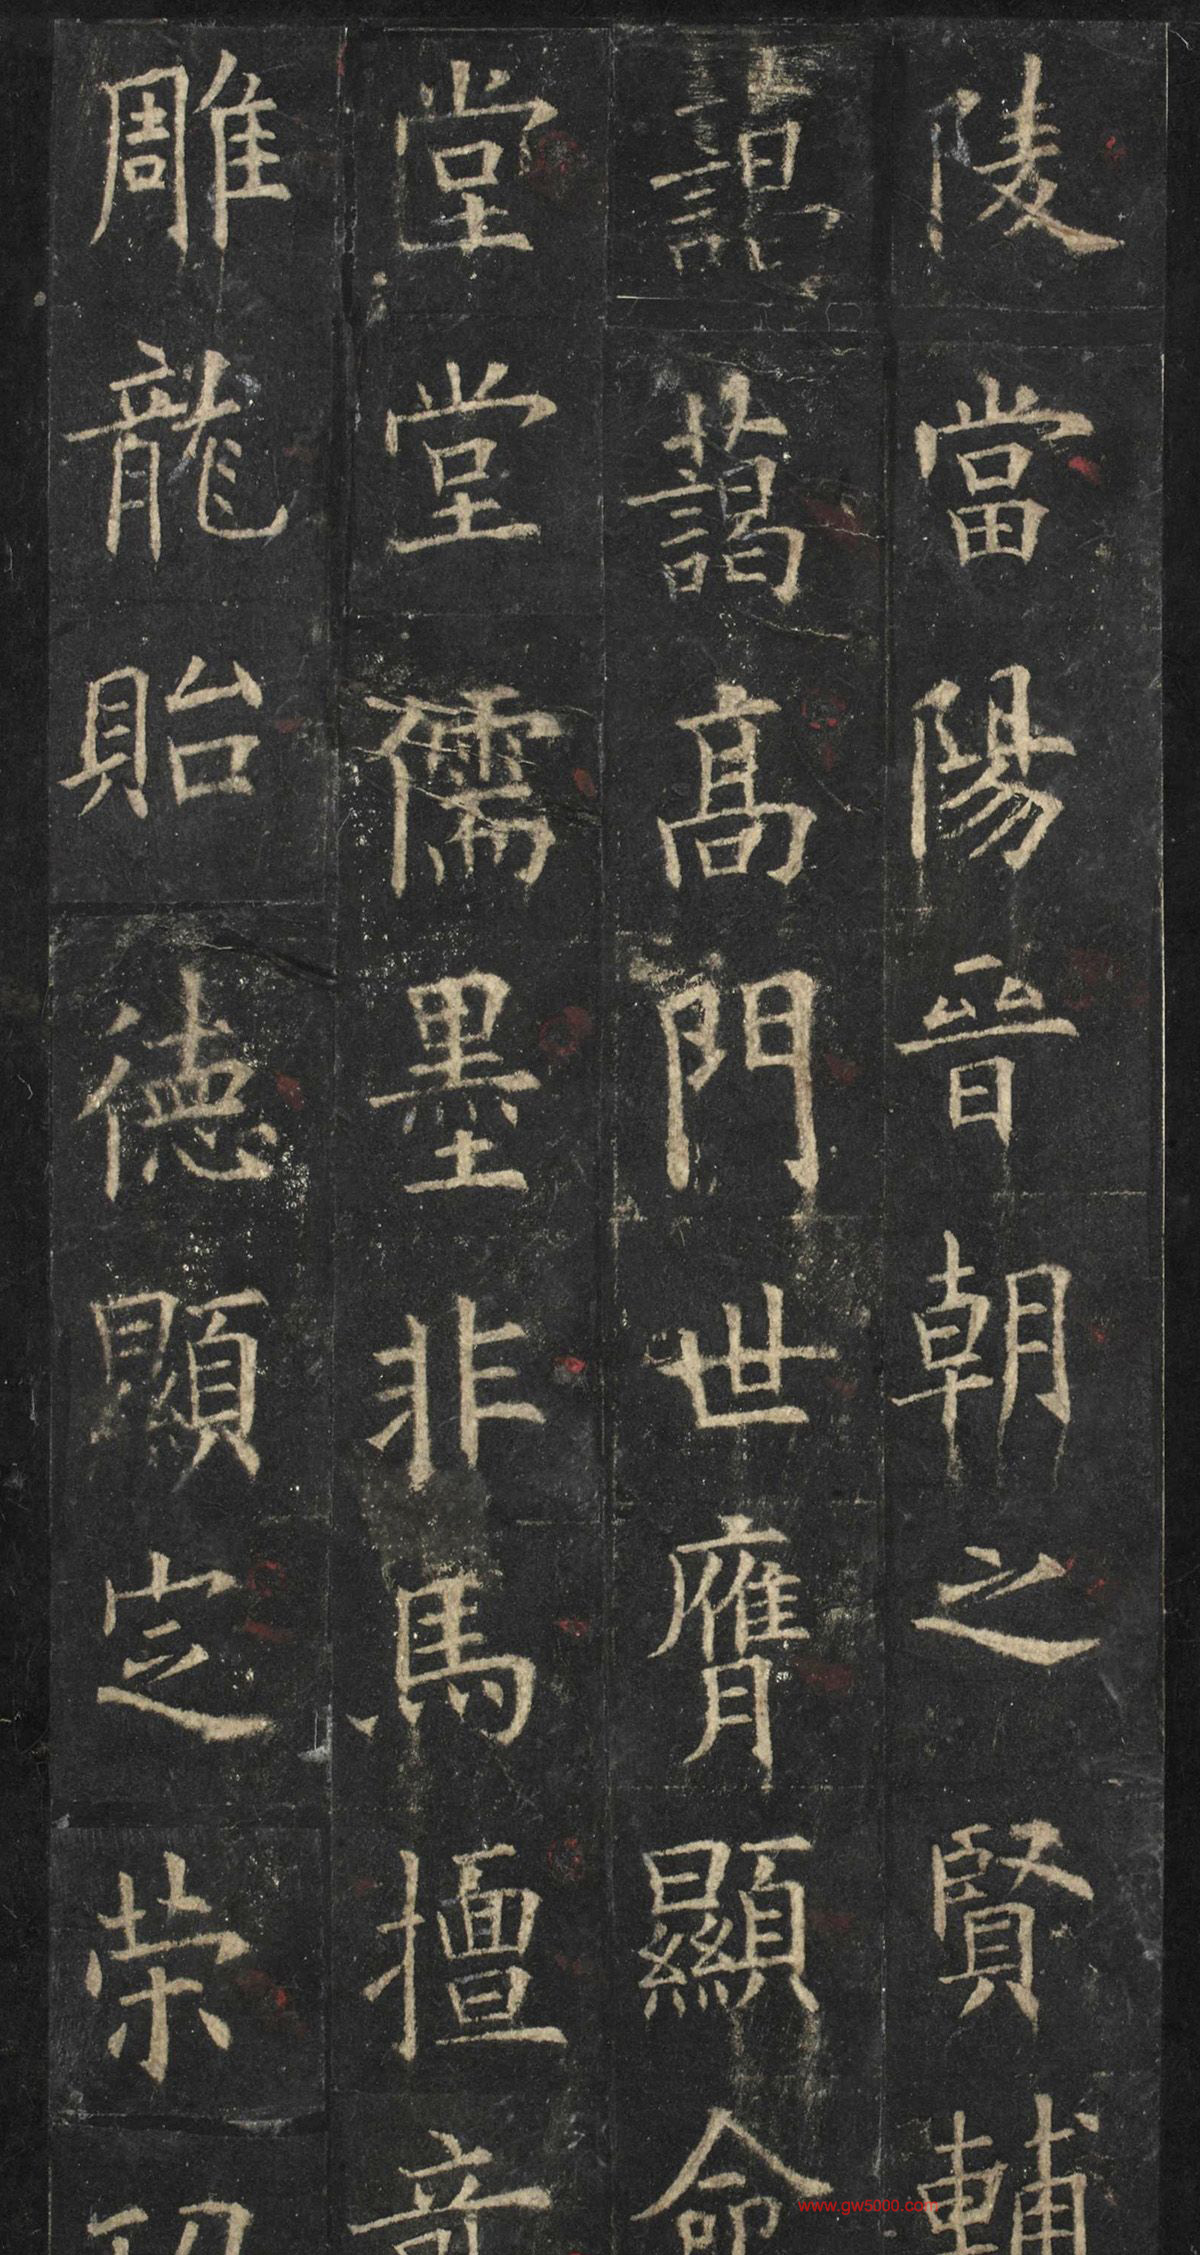 陵當陽晉朝之賢輔
藹藹高門世膺顯命
堂堂儒墨非馬擅竒
雕龍貽徳顕定荣
www.gw5000.com